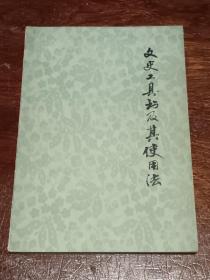 文史工具书及其使用法